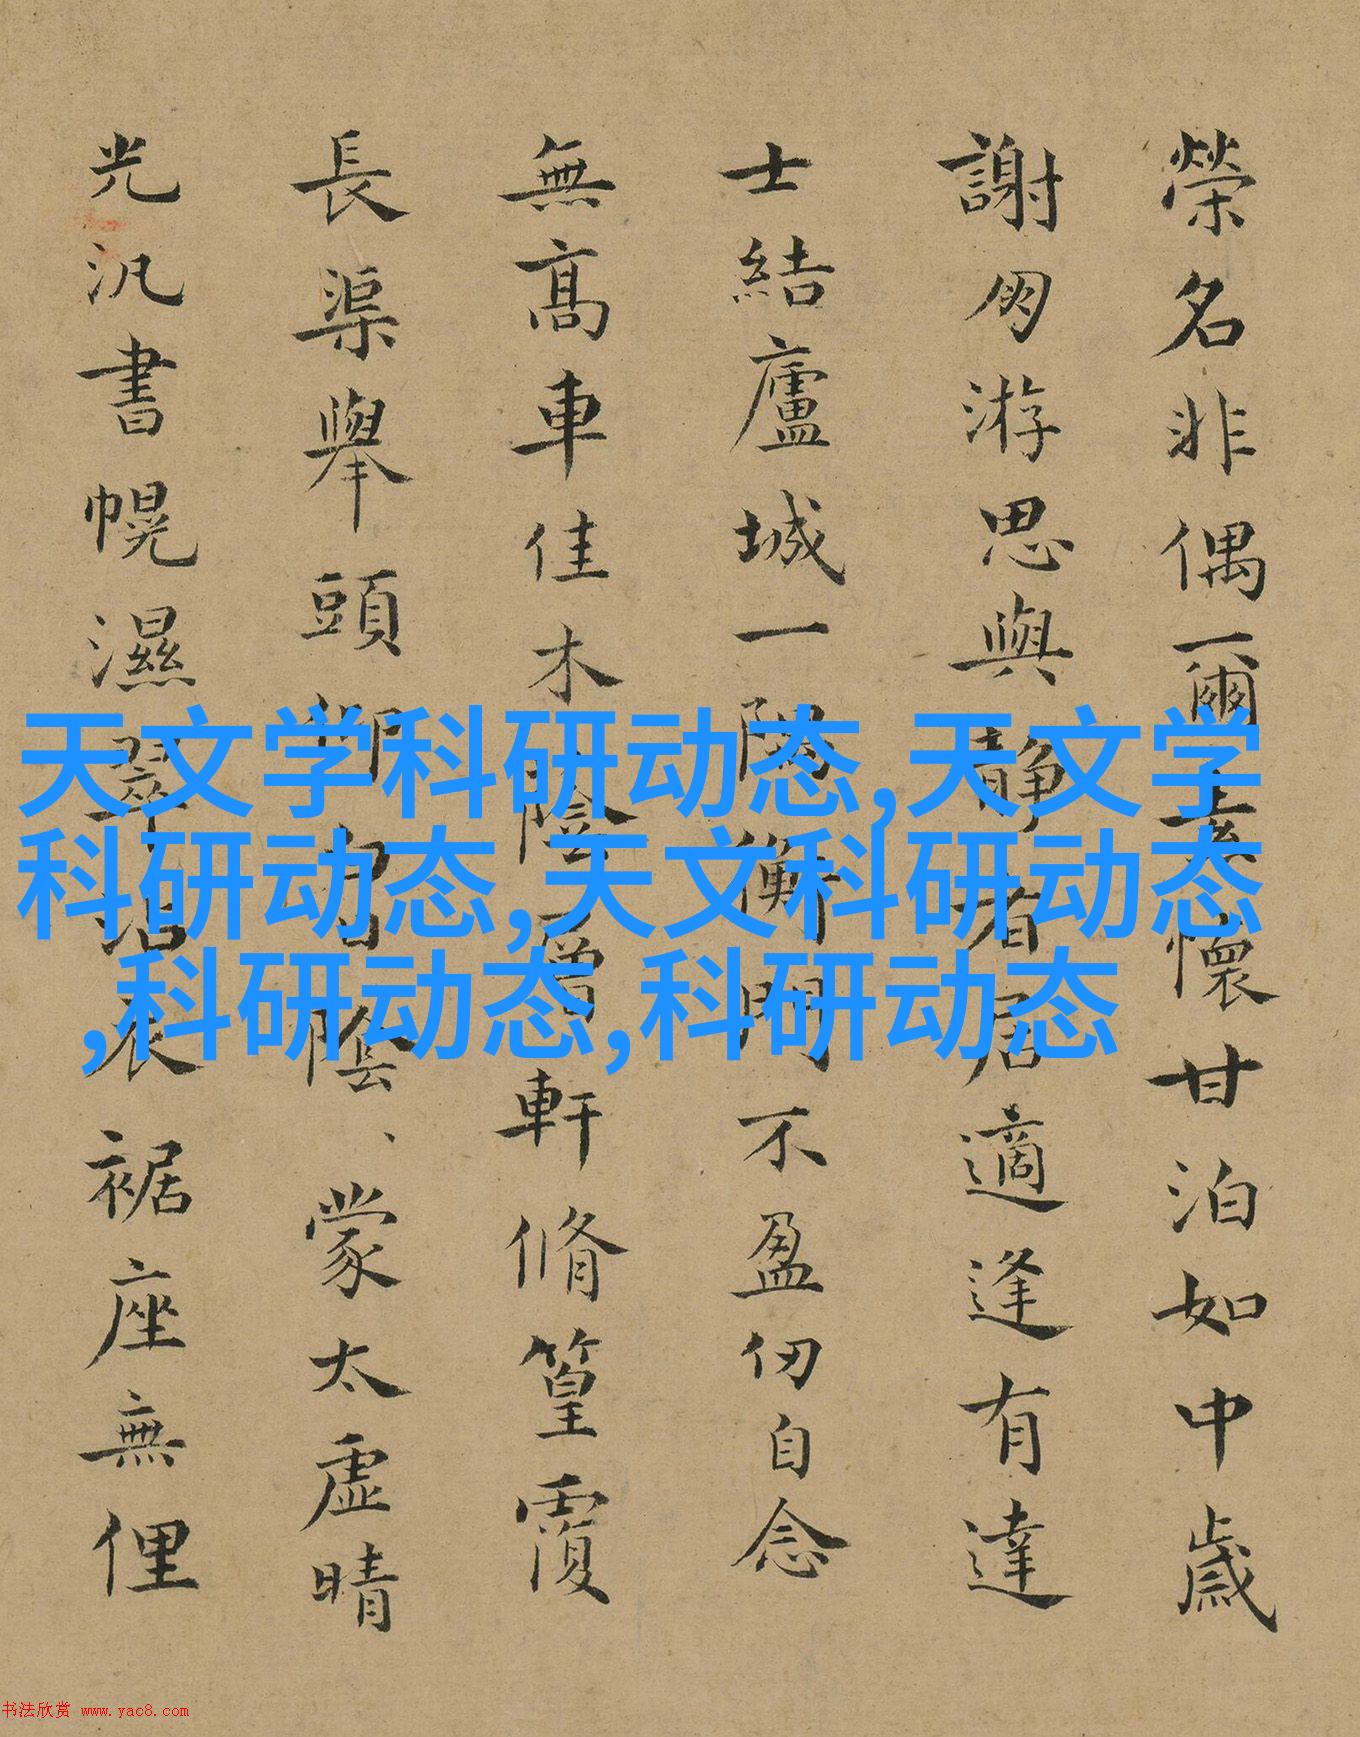 榮名非偶爾素懷甘泊如中歲
謝朋游思與靜者居適逢有達
士結廬城一隅衡門不盈仞自念
無髙車佳木陰層軒脩篁覆
長渠舉頭陰、蒙太虛晴
光汎書幌濕翠沾衣裾座無俚
天文学科研动态,天文学
科研动态,天文科研动态
,科研动态,科研动态
书法欣赏 www.yac8.com